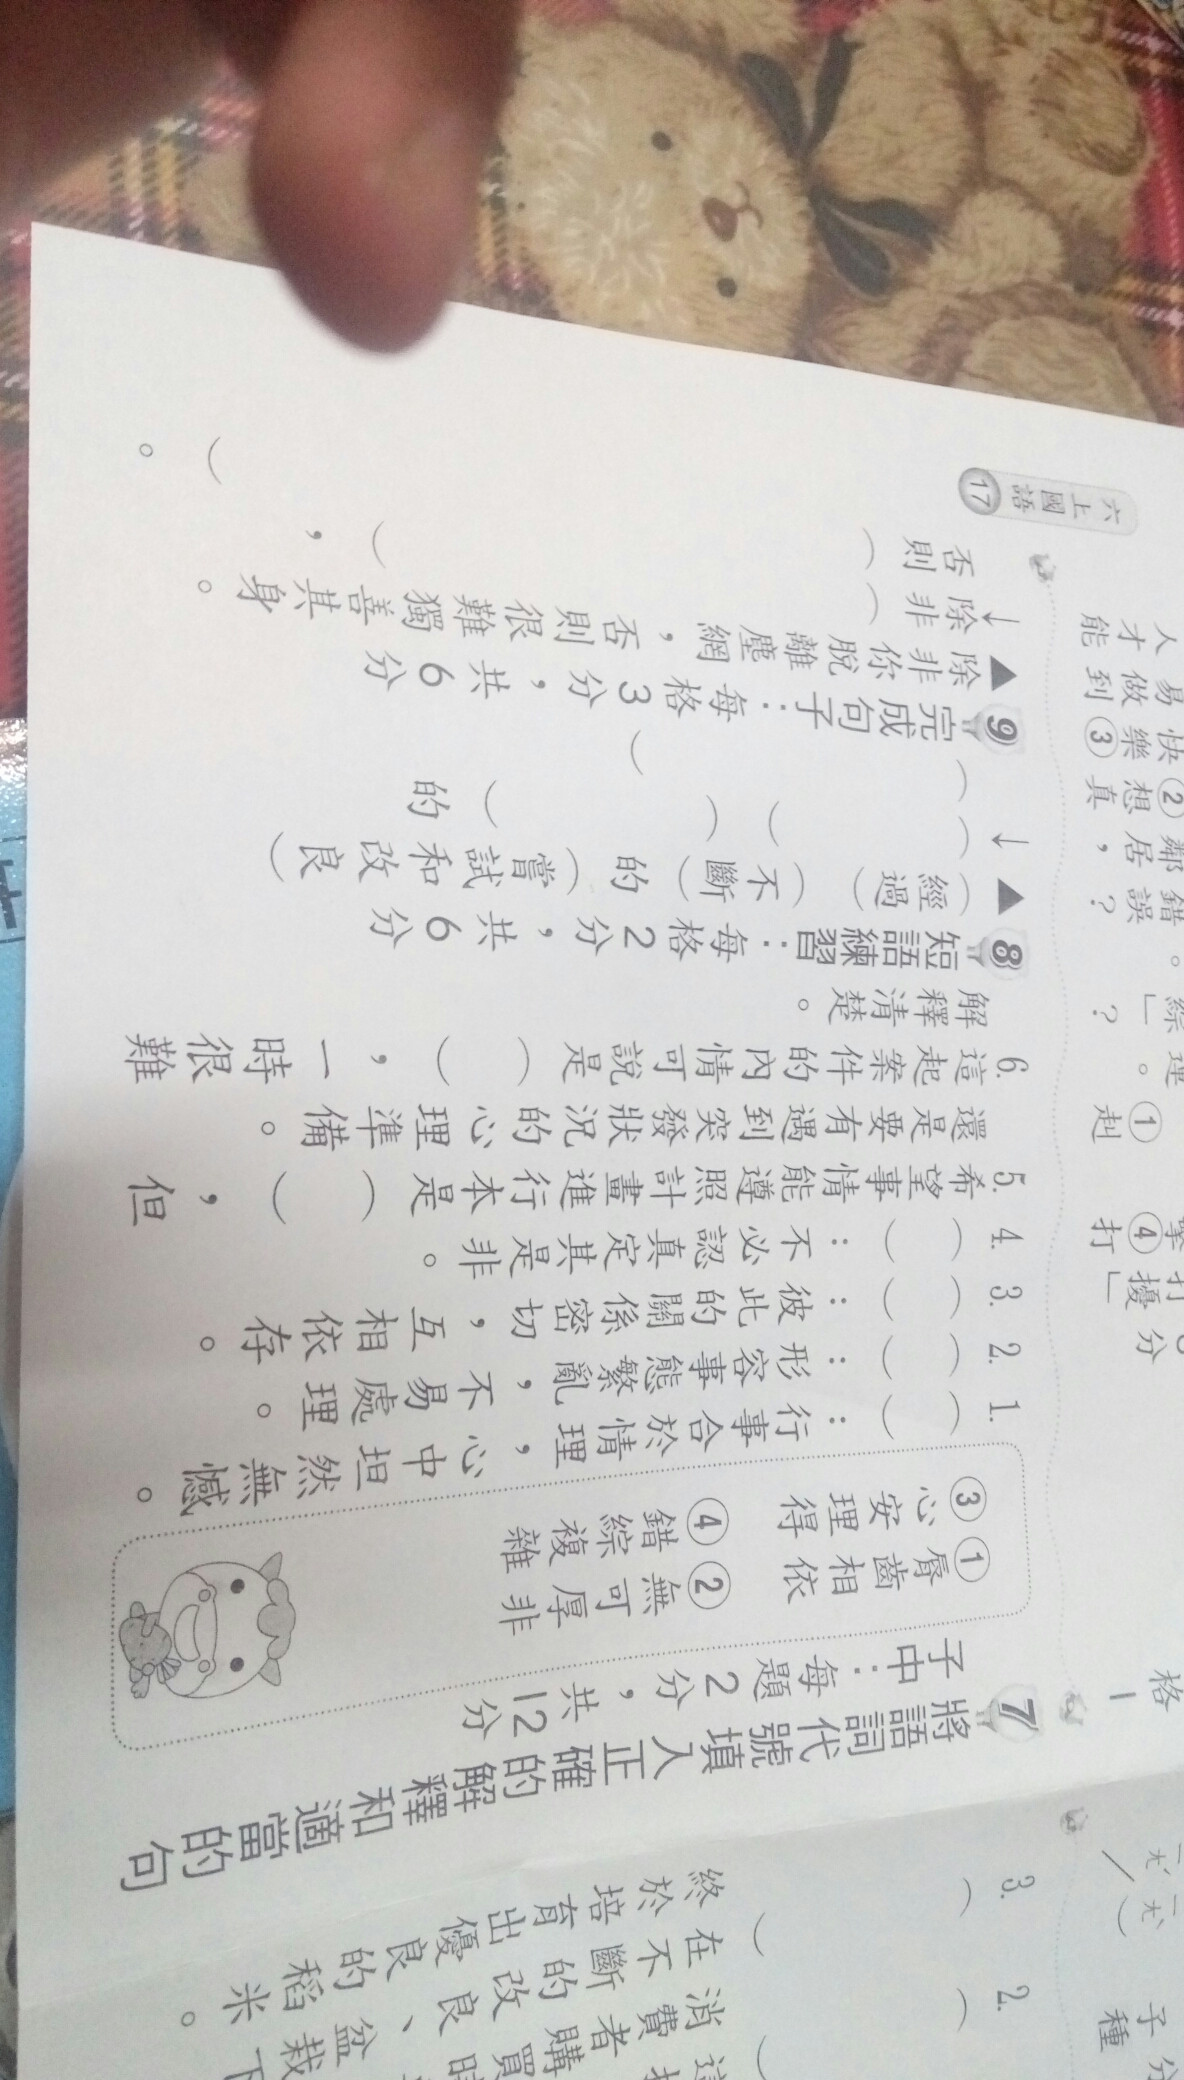 子種
格1
分
打擾」
④打
①赳
綜」?
錯誤。
鄰居,?
②想真
快樂③
易做到
人才能
2.(
消費者購買
3.(
在不斷的改良、盆栽下
終於培育出優良的稻米。
7 將語詞代號填入正確的解釋和適當的句
子中:每題2分,共12分
①脣齒相依 ②無可厚非
③心安理得 ④錯綜複雜
1.( ):行事合於情理,心中坦然無憾。
2.( ):形容事態繁亂,不易處理。
3.( ):彼此的關係密切,互相依存。
4.( ):不必認真定其是非。
5.希望事情能遵照計畫進行本是( ),但
還是要有遇到突發狀況的心理準備。
6.這起案件的內情可說是( ),一時很難
解釋清楚。
8 短語練習:每格2分,共6分
▲(經過)(不斷)的(嘗試和改良)
↓( )( )的
( )
9 完成句子:每格3分,共6分
▲除非你脫離塵網,否則很難獨善其身。
↓除非( ),
否則( )。
六上國語 17